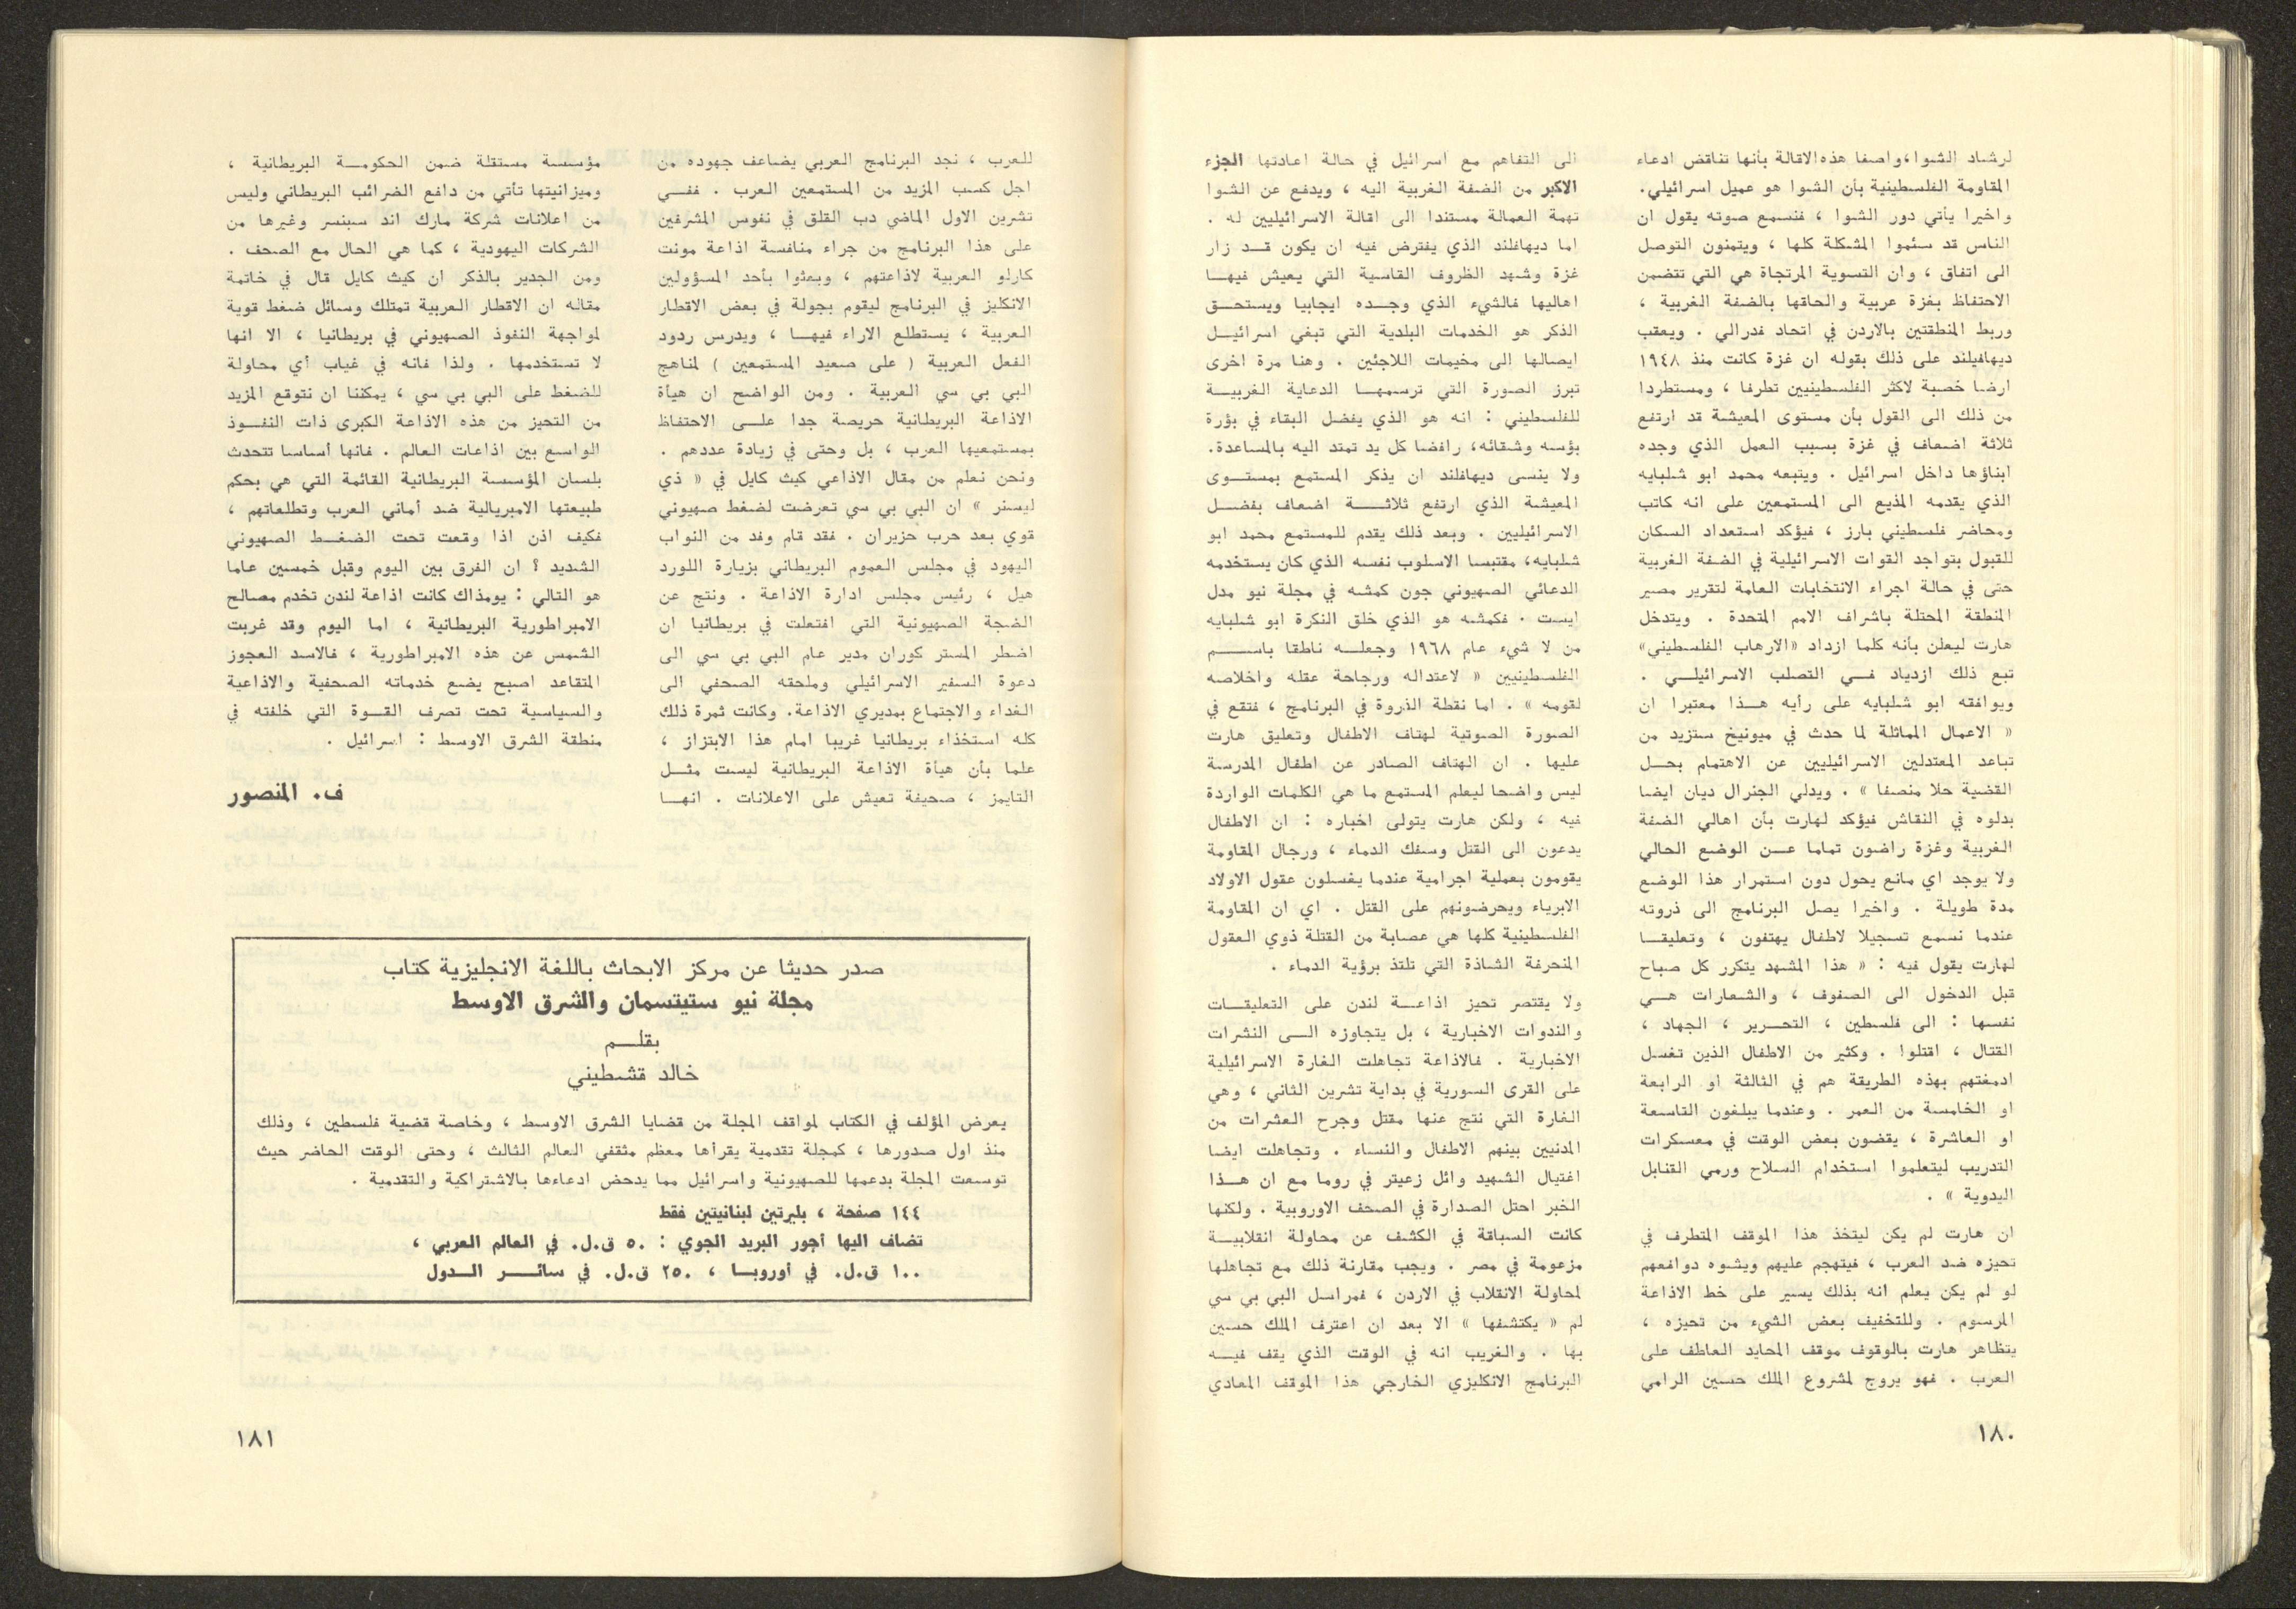 لرشاد الشوا،واصفا هذه الاقالة بأنها تناقض ادعاء
المقاومة الفلسطينية بأن الشوا هو عميل اسرائيلي.
واخيرا يأتي دور الشوا ، فنسمع صوته يقول ان
الناس قد سئموا المشكلة كلها ، ويتمنون التوصل
الى اتفاق ، وان التسوية المرتجاة هي التي تتضمن
الاحتفاظ بغزة عربية والحاقها بالضفة الغربية ،
وربط المنطقتين بالاردن في اتحاد فدرالي . ويعقب
ديهافيلند على ذلك بقوله ان غزة كانت منذ ١٩٤٨
ارضا خصبة لاكثر الفلسطينيين تطرفا ، ومستطردا
من ذلك الى القول بأن مستوى المعيشة قد ارتفع
ثلاثة اضعاف في غزة بسبب العمل الذي وجده
ابناؤها داخل اسرائيل . ويتبعه محمد ابو شلبايه
الذي يقدمه المذيع الى المستمعين على انه كاتب
ومحاضر فلسطيني بارز ، فيؤكد استعداد السكان
للقبول بتواجد القوات الاسرائيلية في الضفة الغربية
حتى في حالة اجراء الانتخابات العامة لتقرير مصير
المنطقة المحتلة باشراف الامم المتحدة . ويتدخل
هارت ليعلن بأنه كلما ازداد «الارهاب الفلسطيني»
تبع ذلك ازدياد فــي التصلب الاسرائيلــي .
ويوافقه ابو شلبايه على رأيه هــذا معتبرا ان
« الاعمال المماثلة لما حدث في ميونيخ ستزيد من
تباعد المعتدلين الاسرائيليين عن الاهتمام بحــل
القضية حلا منصفا » . ويدلي الجنرال ديان ايضا
بدلوه في النقاش فيؤكد لهارت بأن اهالي الضفة
الغربية وغزة راضون تماما عــن الوضع الحالي
ولا يوجد اي مانع يحول دون استمرار هذا الوضع
مدة طويلة . واخيرا يصل البرنامج الى ذروته
عندما نسمع تسجيلا لاطفال يهتفون ، وتعليقــا
لهارت يقول فيه : « هذا المشهد يتكرر كل صباح
قبل الدخول الى الصفوف ، والشعارات هــي
نفسها : الى فلسطين ، التحــرير ، الجهاد ،
القتال ، اقتلوا . وكثير من الاطفال الذين تغسل
ادمغتهم بهذه الطريقة هم في الثالثة او الرابعة
او الخامسة من العمر . وعندما يبلغون التاسعة
او العاشرة ، يقضون بعض الوقت في معسكرات
التدريب ليتعلموا استخدام السلاح ورمي القنابل
اليدوية » .
ان هارت لم يكن ليتخذ هذا الموقف المتطرف في
تحيزه ضد العرب ، فيتهجم عليهم ويشوه دوافعهم
لو لم يكن يعلم انه بذلك يسير على خط الاذاعة
المرسوم . وللتخفيف بعض الشيء من تحيزه ،
يتظاهر هارت بالوقوف موقف المحايد العاطف على
العرب . فهو يروج لمشروع الملك حسين الرامي
الى التفاهم مع اسرائيل في حالة اعادتها الجزء
الاكبر من الضفة الغربية اليه ، ويدفع عن الشوا
تهمة العمالة مستندا الى اقالة الاسرائيليين له .
اما ديهافلند الذي يفترض فيه ان يكون قــد زار
غزة وشهد الظروف القاسية التي يعيش فيهــا
اهاليها فالشيء الذي وجــده ايجابيا ويستحــق
الذكر هو الخدمات البلدية التي تبغي اسرائيــل
ايصالها الى مخيمات اللاجئين . وهنا مرة اخرى
تبرز الصورة التي ترسمهــا الدعاية الغربيــة
للفلسطيني : انه هو الذي يفضل البقاء في بؤرة
بؤسه وشقائه، رافضا كل يد تمتد اليه بالمساعدة.
ولا ينسى ديهافلند ان يذكر المستمع بمستــوى
المعيشة الذي ارتفع ثلاثــة اضعاف بفضــل
الاسرائيليين . وبعد ذلك يقدم للمستمع محمد ابو
شلبايه، مقتبسا الاسلوب نفسه الذي كان يستخدمه
الدعائي الصهيوني جون كمشه في مجلة نيو مدل
ايست . فكمشه هو الذي خلق النكرة ابو شلبايه
من لا شيء عام ١٩٦٨ وجعلــه ناطقا باســم
الفلسطينيين « لاعتداله ورجاحة عقله واخلاصه
لقومه » . اما نقطة الذروة في البرنامج ، فتقع في
الصورة الصوتية لهتاف الاطفال وتعليق هارت
عليها . ان الهتاف الصادر عن اطفال المدرسة
ليس واضحا ليعلم المستمع ما هي الكلمات الواردة
فيه ، ولكن هارت يتولى اخباره : ان الاطفال
يدعون الى القتل وسفك الدماء ، ورجال المقاومة
يقومون بعملية اجرامية عندما يغسلون عقول الاولاد
الابرياء ويحرضونهم على القتل . اي ان المقاومة
الفلسطينية كلها هي عصابة من القتلة ذوي العقول
المنحرفة الشاذة التي تلتذ برؤية الدماء .
ولا يقتصر تحيز اذاعــة لندن على التعليقــات
والندوات الاخبارية ، بل يتجاوزه الــى النشرات
الاخبارية . فالاذاعة تجاهلت الغارة الاسرائيلية
على القرى السورية في بداية تشرين الثاني ، وهي
الغارة التي نتج عنها مقتل وجرح العشرات من
المدنيين بينهم الاطفال والنساء . وتجاهلت ايضا
اغتيال الشهيد وائل زعيتر في روما مع ان هــذا
الخبر احتل الصدارة في الصحف الاوروبية . ولكنها
كانت السباقة في الكشف عن محاولة انقلابيــة
مزعومة في مصر . ويجب مقارنة ذلك مع تجاهلها
لمحاولة الانقلاب في الاردن ، فمراسل البي بي سي
لم « يكتشفها » الا بعد ان اعترف الملك حسين
بها . والغريب انه في الوقت الذي يقف فيــه
البرنامج الانكليزي الخارجي هذا الموقف المعادي
١٨٠
للعرب ، نجد البرنامج العربي يضاعف جهوده من
اجل كسب المزيد من المستمعين العرب . ففــي
تشرين الاول الماضي دب القلق في نفوس المشرفين
على هذا البرنامج من جراء منافسة اذاعة مونت
كارلو العربية لاذاعتهم ، وبعثوا بأحد المسؤولين
الانكليز في البرنامج ليقوم بجولة في بعض الاقطار
العربية ، يستطلع الاراء فيهــا ، ويدرس ردود
الفعل العربية ( على صعيد المستمعين ) لمناهج
البي بي سي العربية . ومن الواضح ان هيأة
الاذاعة البريطانية حريصة جدا علــى الاحتفاظ
بمستمعيها العرب ، بل وحتى في زيادة عددهم .
ونحن نعلم من مقال الاذاعي كيث كايل في « ذي
ليسنر » ان البي بي سي تعرضت لضغط صهيوني
قوي بعد حرب حزيران . فقد قام وفد من النواب
اليهود في مجلس العموم البريطاني بزيارة اللورد
هيل ، رئيس مجلس ادارة الاذاعة . ونتج عن
الضجة الصهيونية التي افتعلت في بريطانيا ان
اضطر المستر كوران مدير عام البي بي سي الى
دعوة السفير الاسرائيلي وملحقه الصحفي الى
الغداء والاجتماع بمديري الاذاعة. وكانت ثمرة ذلك
كله استخذاء بريطانيا غريبا امام هذا الابتزاز ،
علما بأن هيأة الاذاعة البريطانية ليست مثــل
التايمز ، صحيفة تعيش على الاعلانات . انهــا
مؤسسة مستقلة ضمن الحكومــة البريطانية ،
وميزانيتها تأتي من دافع الضرائب البريطاني وليس
من اعلانات شركة مارك اند سبنسر وغيرها من
الشركات اليهودية ، كما هي الحال مع الصحف .
ومن الجدير بالذكر ان كيث كايل قال في خاتمة
مقاله ان الاقطار العربية تمتلك وسائل ضغط قوية
لمواجهة النفوذ الصهيوني في بريطانيا ، الا انها
لا تستخدمها . ولذا فانه في غياب أي محاولة
للضغط على البي بي سي ، يمكننا ان نتوقع المزيد
من التحيز من هذه الاذاعة الكبرى ذات النفــوذ
الواسع بين اذاعات العالم . فانها أساسا تتحدث
بلسان المؤسسة البريطانية القائمة التي هي بحكم
طبيعتها الامبريالية ضد أماني العرب وتطلعاتهم ،
فكيف اذن اذا وقعت تحت الضغــط الصهيوني
الشديد ؟ ان الفرق بين اليوم وقبل خمسين عاما
هو التالي : يومذاك كانت اذاعة لندن تخدم مصالح
الامبراطورية البريطانية ، اما اليوم وقد غربت
الشمس عن هذه الامبراطورية ، فالاسد العجوز
المتقاعد اصبح يضع خدماته الصحفية والاذاعية
والسياسية تحت تصرف القــوة التي خلفته في
منطقة الشرق الاوسط : اسرائيل .
ف. المنصور
صدر حديثا عن مركز الابحاث باللغة الانجليزية كتاب
مجلة نيو ستيتسمان والشرق الاوسط
بقلــم
خالد قشطيني
يعرض المؤلف في الكتاب لمواقف المجلة من قضايا الشرق الاوسط ، وخاصة قضية فلسطين ، وذلك
منذ اول صدورها ، كمجلة تقدمية يقرأها معظم مثقفي العالم الثالث ، وحتى الوقت الحاضر حيث
توسعت المجلة بدعمها للصهيونية واسرائيل مما يدحض ادعاءها بالاشتراكية والتقدمية .
١٤٤ صفحة ، بليرتين لبنانيتين فقط
تضاف اليها أجور البريد الجوي : ٥٠ ق.ل. في العالم العربي ،
١٠٠ ق.ل. في أوروبــا ، ٢٥٠ ق.ل. في سائــر الــدول
١٨١